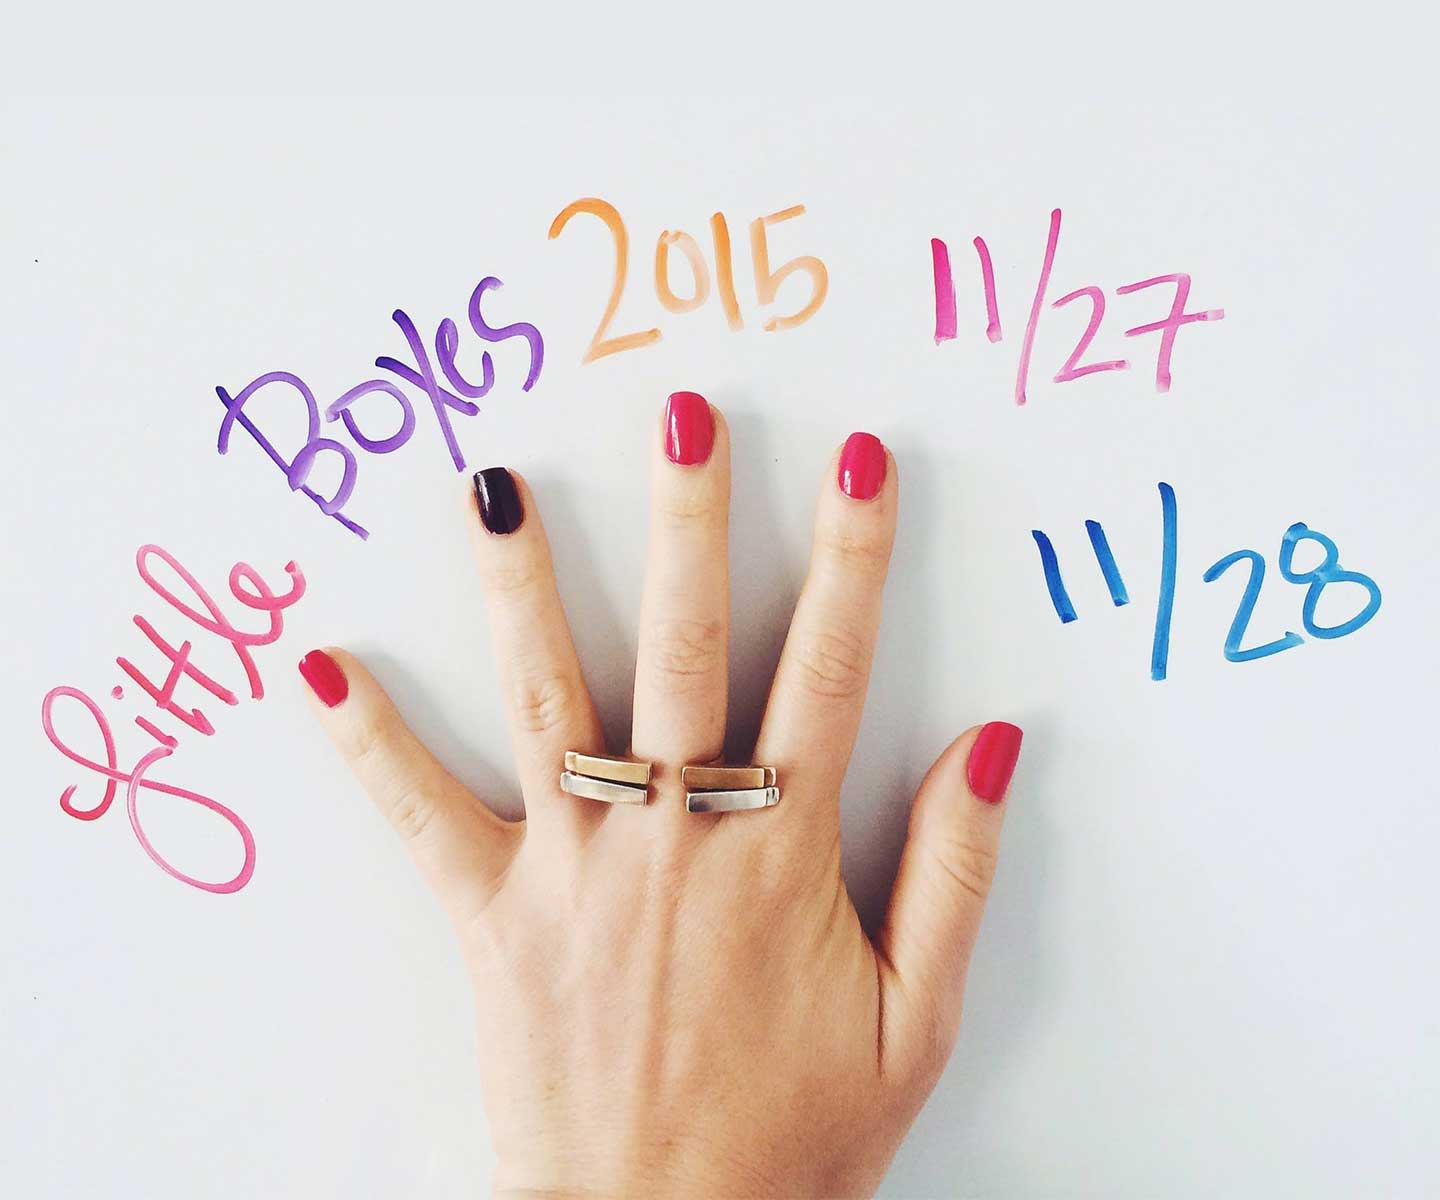 Little Boxes 2015
11/27
11/28